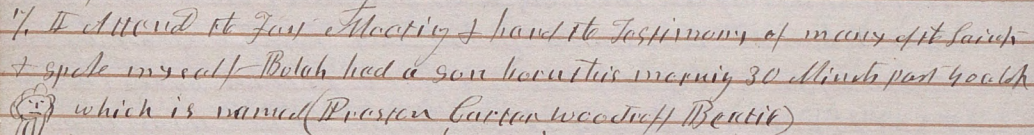 17, II Attend the Fast Meeting & hard the Testimony of many of the Saints
& spoke myself Bulah had a son born this mornig 30 Minuts past 4 oclok
which is named (Preston Carter Woodruff Beatie)